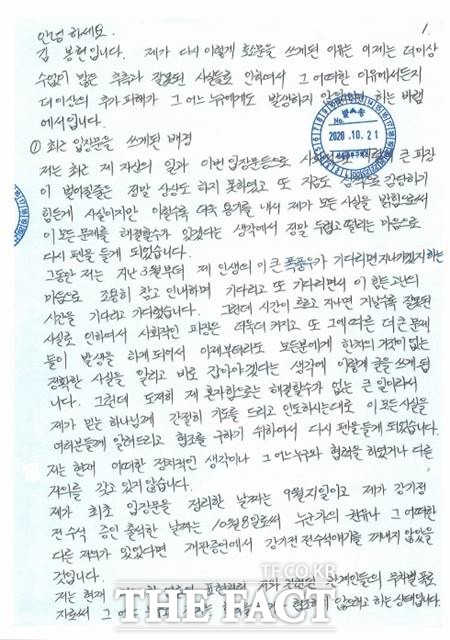 안녕 하세요.
1.
김 봉현입니다. 제가 다시 이렇게 호소문을 쓰게된 이유는 이제는 더이상
수없이 많은 추측과 잘못된 사실들로 인하여서 그 어떠한 이유에서든지
더이상의 추가 피해가 그 어느 누구에게도 발생하지 않 하는 바램
에서입니다.
발송
No.
2020. 10. 21
① 최근 입장문을 쓰게된 배경
저는 최근 제 자신의 일과 이번 입장문등으로 큰 파장
이 벌어질줄은 정말 상상도 하지 못하였고 또 지금도 감당하기
힘든게 사실이지만 이럴수록 더욱 용기를 내서 제가 모든 사실을 밝힘으로써
이 모든 문제를 해결할수가 있겠다는 생각에서 정말 두렵고 떨리는 마음으로
다시 펜을 들게 되었습니다.
그동안 저는 지난 3월부터 제 인생의 이 큰 폭풍우가 기다리면 지나가겠지 하는
마음으로 조용히 참고 인내하며 기다리고 또 기다리면서 이 힘든 고난의
시간을 기다리고 기다렸습니다. 그런데 시간이 흐르고 지나면 지날수록 잘못된
사실로 인하여서 사회적인 파장은 더욱더 커지고 또 그에 따른 더 큰 문제
들이 발생을 하게 되어서 이제부터라도 모든분에게 한치의 거짓이 없는
정확한 사실을 알리고 바로 잡아야 겠다는 생각에 이렇게 글을 쓰게 됩
니다. 그런데 도저히 제 혼자힘으로는 해결할수가 없는 큰 일이라서
제가 믿는 하나님께 간절히 기도를 드리고 인도하시는대로 이 모든 사실을
여러분들게 알려드리고 협조를 구하기 위하여서 다시 펜을 들게 되었습니다.
저는 현재 어떠한 정치적인 생각이나 그 어느 누구와 협력을 하였거나 다른
저의를 갖고 있지 않습니다.
제가 최초 입장문을 정리한 날짜는 9월 21일이고 제가 강기정
전 수석 증인 출석한 날짜는 10월 8일로써 누군가의 권유나 그 어떠한
다른 저의가 있었다면 재판 증언에서 강기정 전 수석얘기를 꺼내지 않았을
것입니다.
저는 현재 관계인들의 무차별 폭로
자로써 그 협조하지 않으려고 하는 상태입니다.
TF.CO.KR
THE FACT